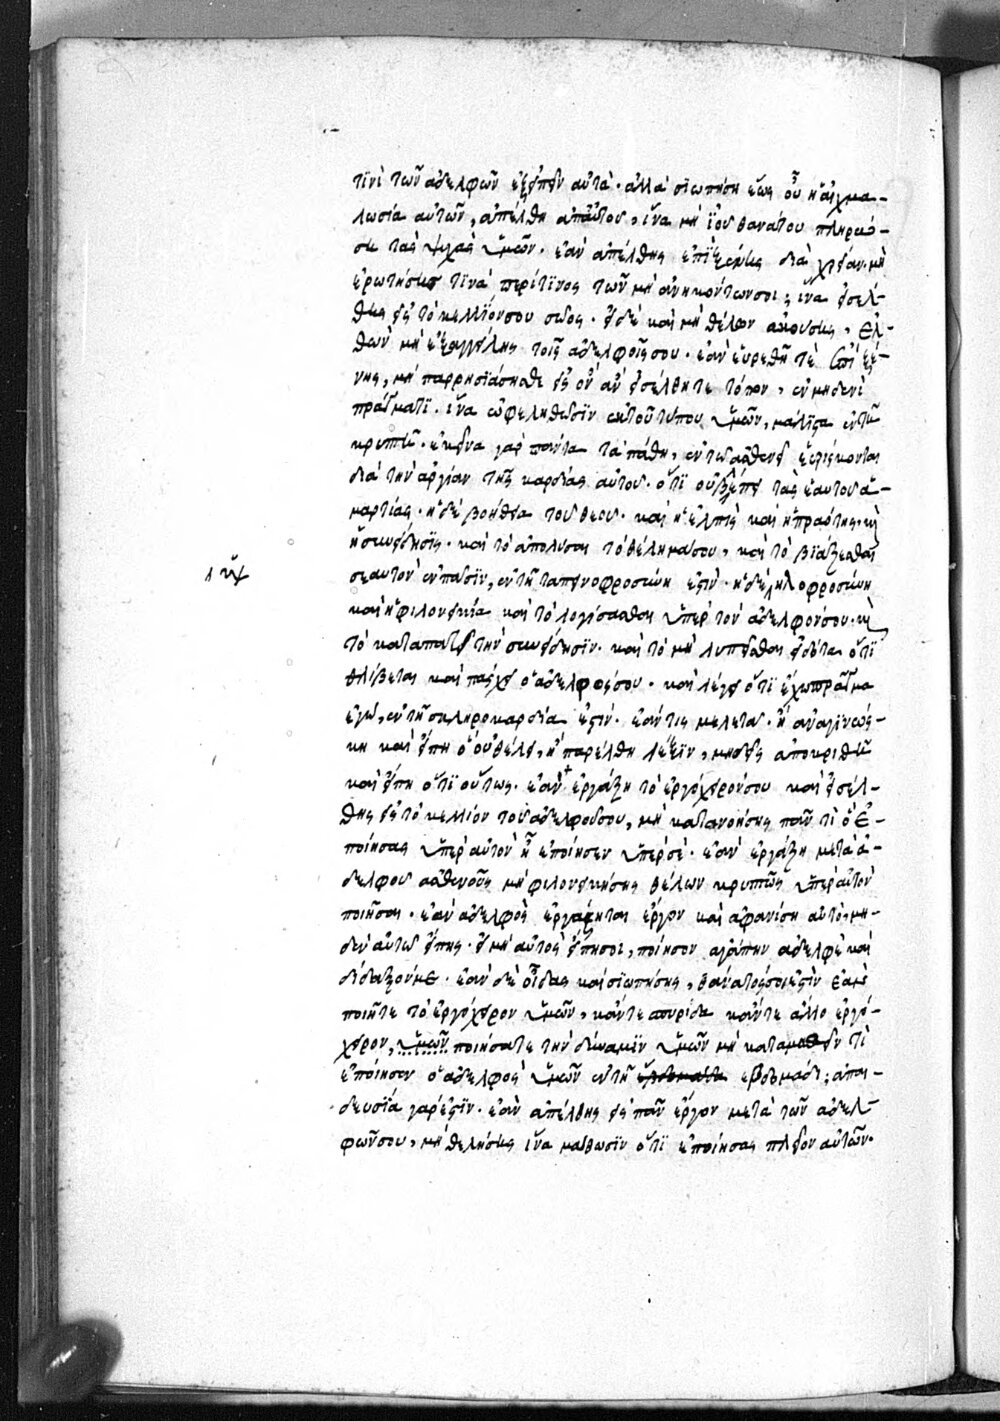 τινὶ τῶν ἀδελφῶν ἐξείπειν αὐτά· ἀλλὰ σιωπήση ἕως οὗ ἡ αἰχμα-
λωσία αὐτῶν, ἀπέλθη ἀπ' αὐτοῦ, ἵνα μὴ ἰοῦ θανάτου πληρώ-
ση τὰς ψυχὰς ὑμῶν. ἐὰν ἀπέλθης ἐπὶ διὰ χρείαν· μὴ
ἐρωτήσης τινὰ περί τινος τῶν μὴ ἀνηκόντων σοι, ἵνα εἰσέλ-
θης εἰς τὸ κελλίον σου σῶος. εἰ δὲ καὶ μὴ θέλων ἀκούσης, ἐλ-
θὼν μὴ ἐξαγγείλης τοῖς ἀδελφοῖς σου. ἐὰν εὑρεθῆτε ἐπὶ ξέ-
νης, μὴ παρρησιάσησθε εἰς ὃν ἂν εἰσέλθητε τόπον, ἐν μηδενὶ
πράγματι. ἵνα ὠφεληθῶσιν ἐκ τοῦ τύπου ὑμῶν, μάλιστα ἐν τῶ
κρυπτῶ. ἐκεῖνα γὰρ πάντα τὰ πάθη, ἐν τῶ ἀσθενεῖ εὑρίσκονται
διὰ τὴν ἀργίαν τῆς καρδίας αὐτοῦ. ὅτι οὐ βλέπει τὰς ἑαυτοῦ ἁ-
μαρτίας. ἡ δὲ βοήθεια τοῦ θεοῦ. καὶ ἡ ἐλπὶς καὶ ἡ πραότης. καὶ
ἡ συνείδησις. καὶ τὸ ἀπολῦσαι τὸ θέλημά σου, καὶ τὸ βιάζεσθαι
σεαυτὸν ἐν πᾶσιν, ἐν τῆ ταπεινοφροσύνη ἐστίν. ἡ δὲ ὑψηλοφροσύνη
καὶ ἡ φιλονεικία καὶ τὸ λογίσασθαι ὑπὲρ τὸν ἀδελφόν σου. καὶ
τὸ καταπατεῖν τὴν συνείδησιν. καὶ τὸ μὴ λυπεῖσθαι εἰδότα ὅτι
θλίβεται καὶ πάσχει ὁ ἀδελφός σου. καὶ λέγει ὅτι ἔχω πρᾶγμα
ἐγώ, ἐν τῆ σκληροκαρδία ἐστίν. ἐάν τις μελετᾶ. ἢ ἀναγινώσ-
κη καὶ εἴπη ὃ οὐ θέλει, ἢ παρέλθη λέξιν, μηδεὶς ἀποκριθῆ
καὶ εἴπη ὅτι οὕτως. ἐὰν ἐργάζη τὸ ἐργόχειρόν σου καὶ εἰσέλ-
θης εἰς τὸ κελλίον τοῦ ἀδελφοῦ σου, μὴ κατανοήσης πᾶν τι ὃ ἐ-
ποίησας ὑπὲρ αὐτὸν ἢ ἐποίησεν ὑπὲρ σέ. ἐὰν ἐργάζη μετὰ ἀ-
δελφοῦ ἀσθενοῦς μὴ φιλονεικήσης θέλων κρυπτῶς ὑπὲρ αὐτὸν
ποιῆσαι. ἐὰν ἀδελφὸς ἐργάζηται ἔργον καὶ ἀφανίση αὐτό, μη-
δὲν αὐτῶ εἴπης. εἰ μὴ αὐτὸς εἴπη σοι, ποίησον ἀγάπην ἀδελφὲ καὶ
δίδαξόν με. ἐὰν δὲ οἶδας καὶ σιωπήσης, θάνατός σοι ἐστίν ἐὰν
ποιῆτε τὸ ἐργόχειρον ὑμῶν, κἄντε σπυρίδα κἄντε ἄλλο ἐργό-
χειρον, ὑμῶν ποιήσατε τὴν δύναμιν ὑμῶν μὴ καταμαθεῖν τί
ἐποίησεν ὁ ἀδελφὸς ὑμῶν ἐν τῆ ἑβδομάδι; ἀπαι-
δευσία γάρ ἐστιν. ἐὰν ἀπέλθης εἰς πᾶν ἔργον μετὰ τῶν ἀδελ-
φῶν σου, μὴ θελήσης ἵνα μάθωσιν ὅτι ἐποίησας πλεῖον αὐτῶν.